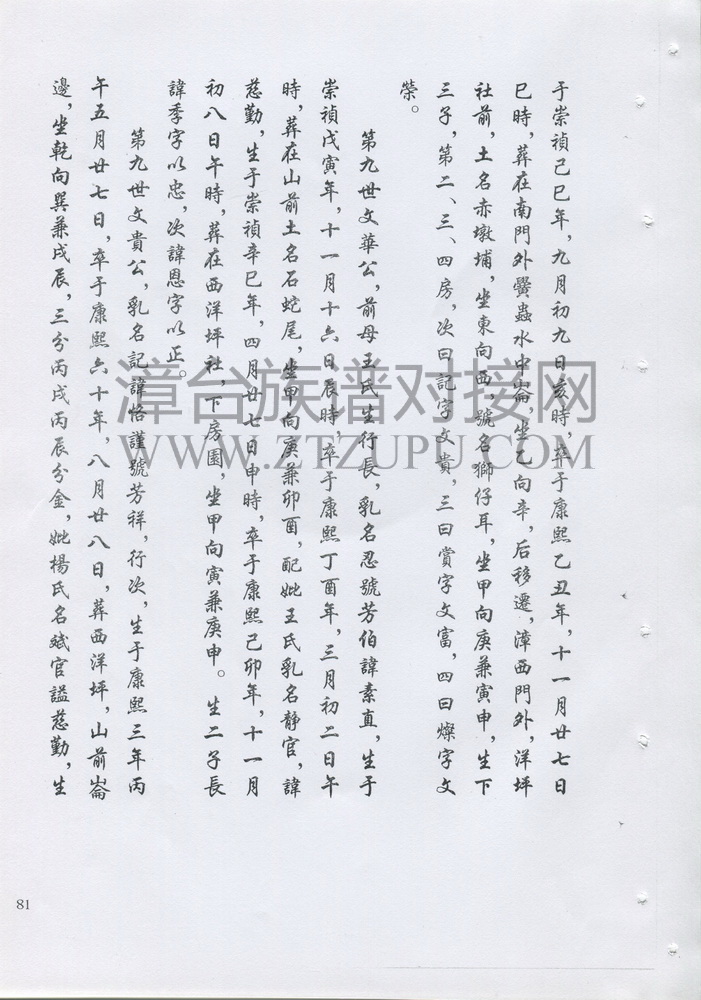 于崇禎己巳年，九月初九日亥時，卒于康熙乙丑年，十一月廿七日
巳時，葬在南門外鱟蟲水中崙，坐乙向辛，后移遷，漳西門外，洋坪
社前，土名赤墩埔，坐東向西，號名獅仔耳，坐甲向庚兼寅申，生下
三子，第二、三、四房，次曰記字文貴，三曰賞字文富，四曰燦字文
榮。
第九世文華公，前母王氏生行長，乳名忍號芳伯諱素直，生于
崇禎戊寅年，十一月十六日辰時，卒于康熙丁酉年，三月初二日午
時，葬在山前土名石蛇尾，坐甲向庚兼卯酉，配妣王氏乳名靜官，諱
慈勤，生于崇禎辛巳年，四月廿七日申時，卒于康熙己卯年，十一月
初八日午時，葬在西洋坪社，下房園，坐甲向寅兼庚申。生二子長
諱季字以忠，次諱恩字以正。
第九世文貴公，乳名記諱恪謹號芳祥，行次，生于康熙三年丙
午五月廿七日，卒于康熙六十年，八月廿八日，葬西洋坪，山前崙
邊，坐乾向巽兼戌辰，三分丙戌丙辰分金，妣楊氏名娍官謚慈勤，生
漳台族谱对接网
WWW.ZTZUPU.COM
81